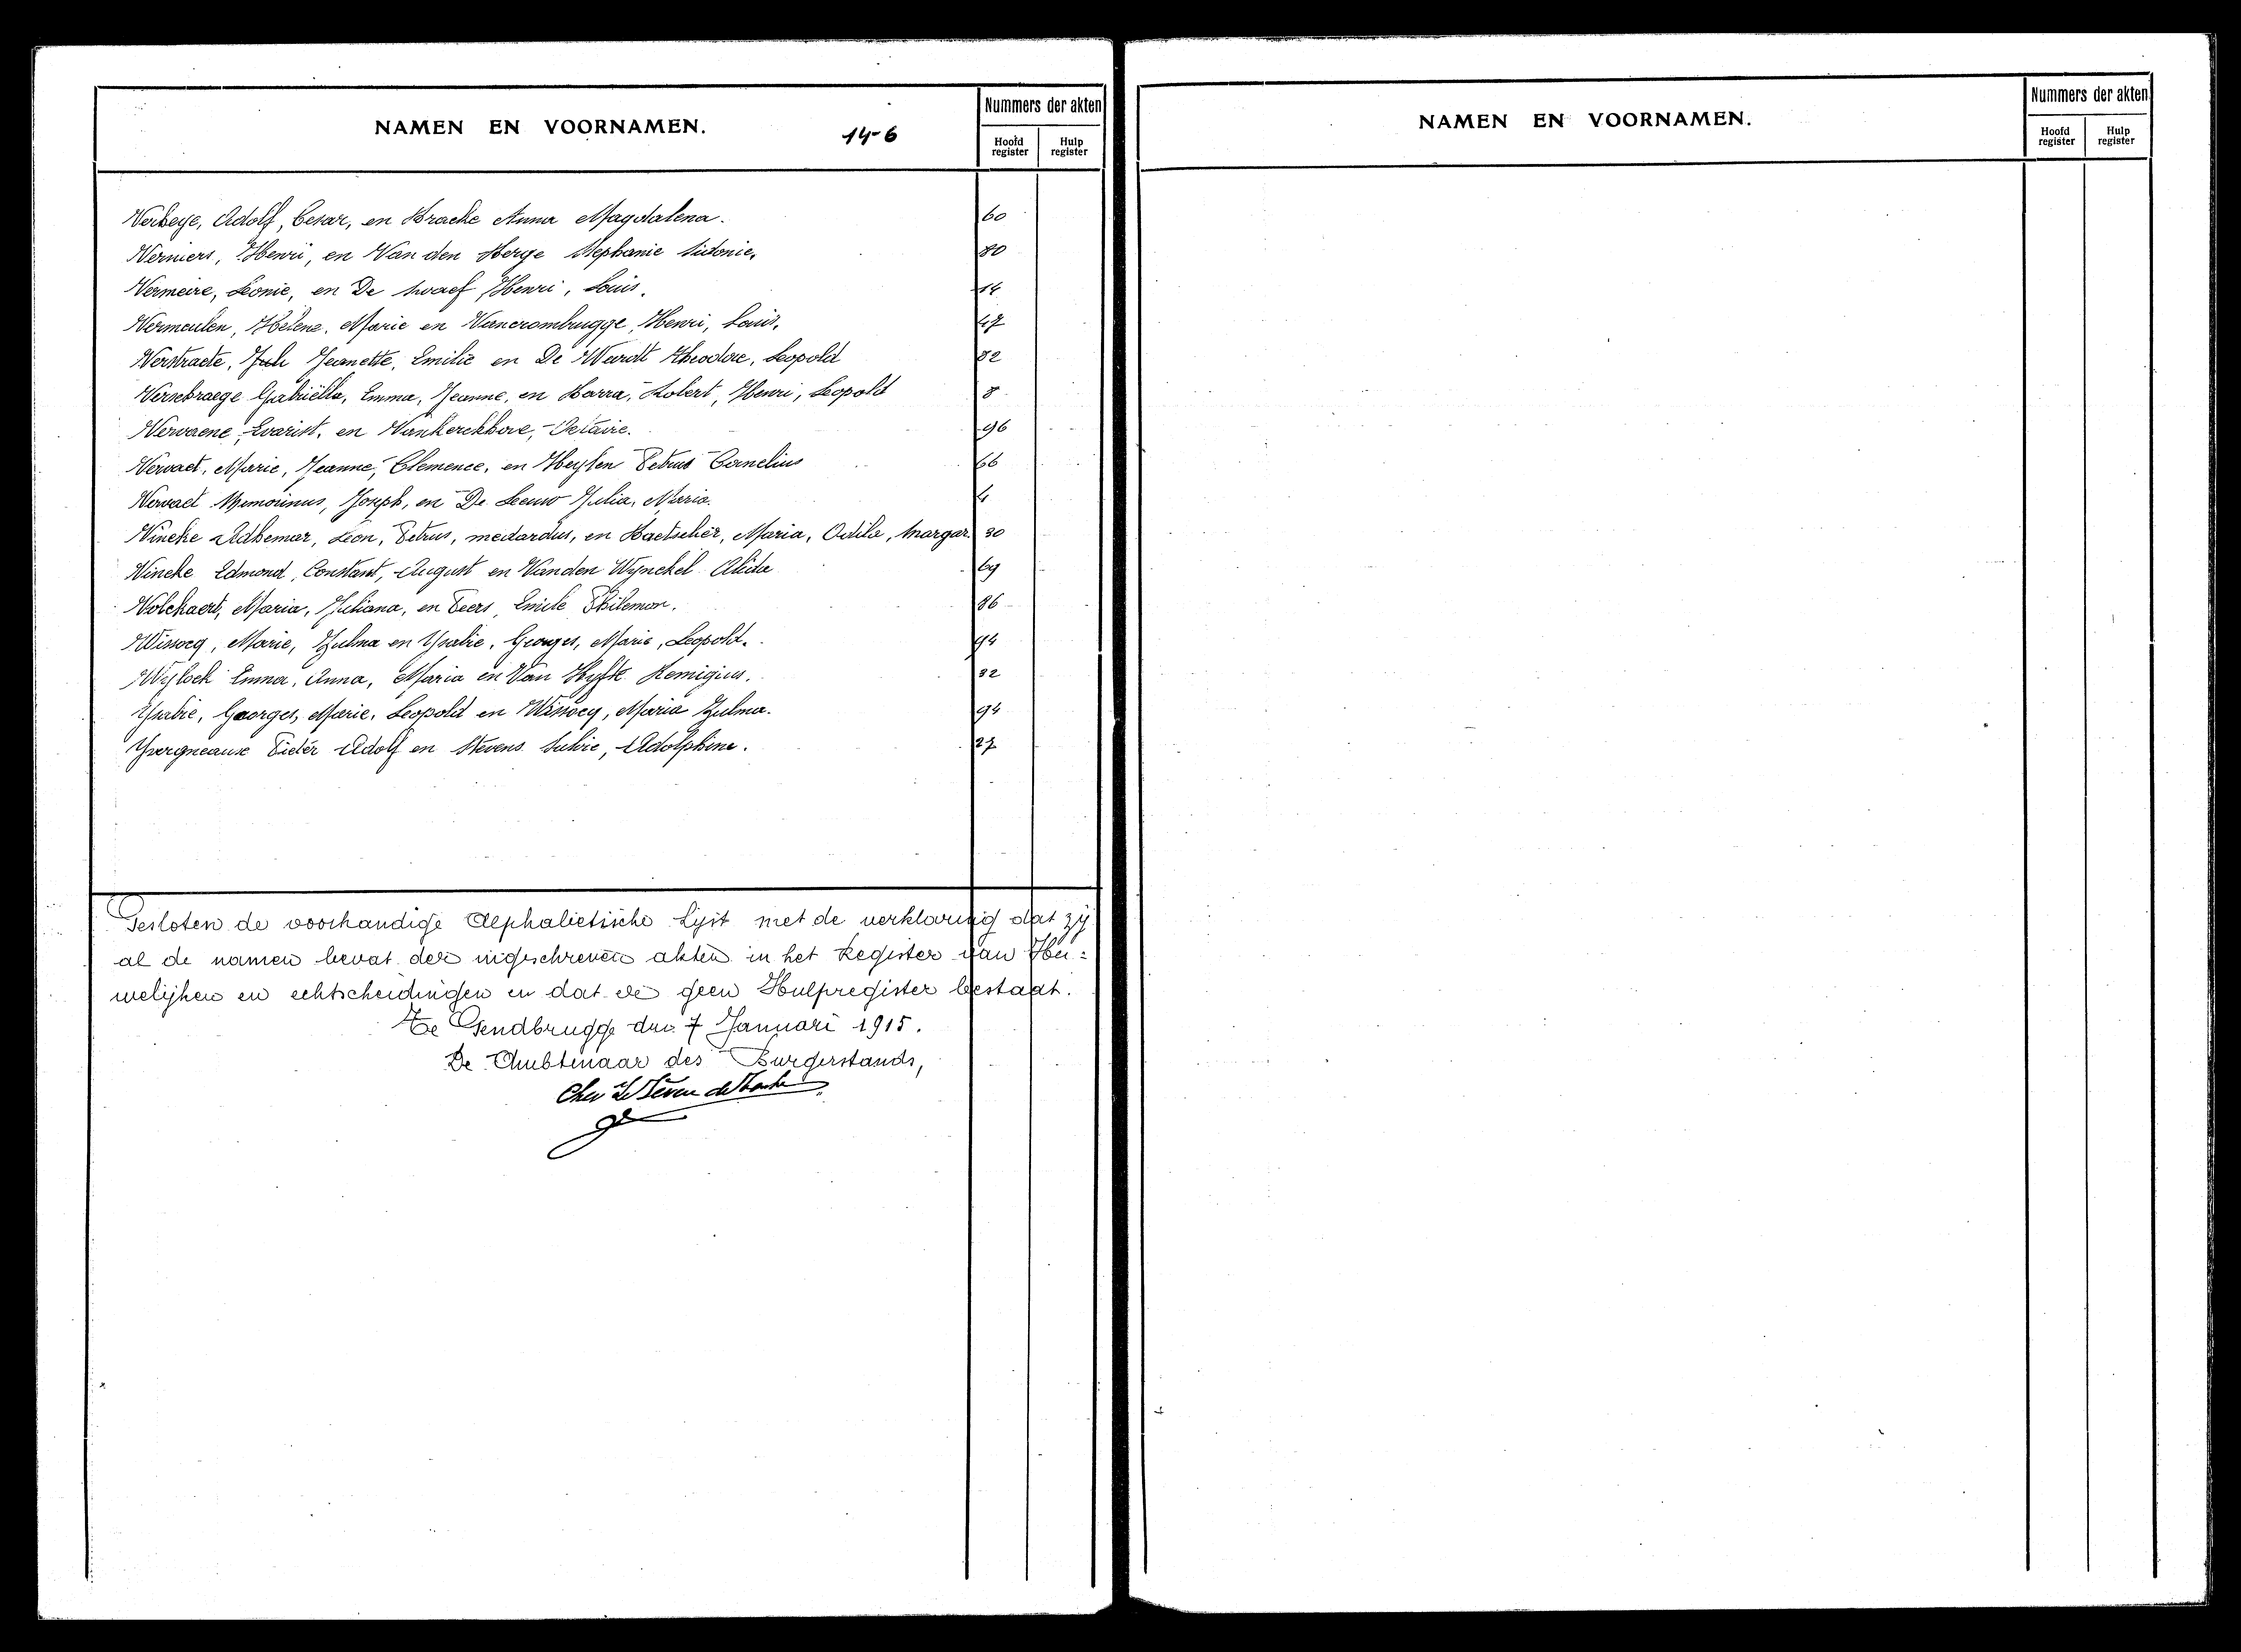 NAMEN EN VOORNAMEN.
14-6
Nummers der akten
Hoofd register
Hulp register
Verbeye, Adolf, Cesar, en Bracke Anna Magdalena. 60
Verniers, Henri, en Van den Berge Stephanie Sidonie. 80
Vermeire, Leonie, en De Swaef Henri, Louis. 14
Vermeulen, Helene, Marie en Vancrombrugge, Henri, Louis, 47
Verstraete, Jeanette, Emilie en De Weirdt Theodore, Leopold 82
Versebraege Gabriëlla, Emma, Jeanne, en Barra, Robert, Henri, Leopold 8
Vervaene, Evarist, en Vankerckhove, Octavie. 96
Vervaet, Marie, Jeanne, Clemence, en Heylen Petrus Cornelius 66
Vervaet Joseph, en De Leeuw Julia, Maria. 4
Vincke Adhemar, Leon, Petrus, medardus, en Maria, Odila, Margar. 30
Vincke Edmond, Constant, August en Vanden Wynckel Alida 69
Volckaert, Maria, Juliana, en Peers, Emile Philemon. 86
Wissocq, Marie, Zulma en Ysabie, Georges, Marie, Leopold. 94
Wylock Emma, Anna, Maria en Van Hyfte Remigius. 32
Ysabie, Georges, Marie, Leopold en Wissocq, Maria Zulma. 94
Pieter Adolf en Stevens Silvie, Adolphine. 27
Gesloten de voorhandige Alphabetische Lijst met de verklaring dat zij
al de namen bevat der ingeschreven akten in het Register van Hu=
welijken en echtscheidingen en dat er geen Hulpregister bestaat.
Te Gendbrugge den 7 Januari 1915.
De Ambtenaar des Burgerstands,
NAMEN EN VOORNAMEN.
Nummers der akten
Hoofd register
Hulp register